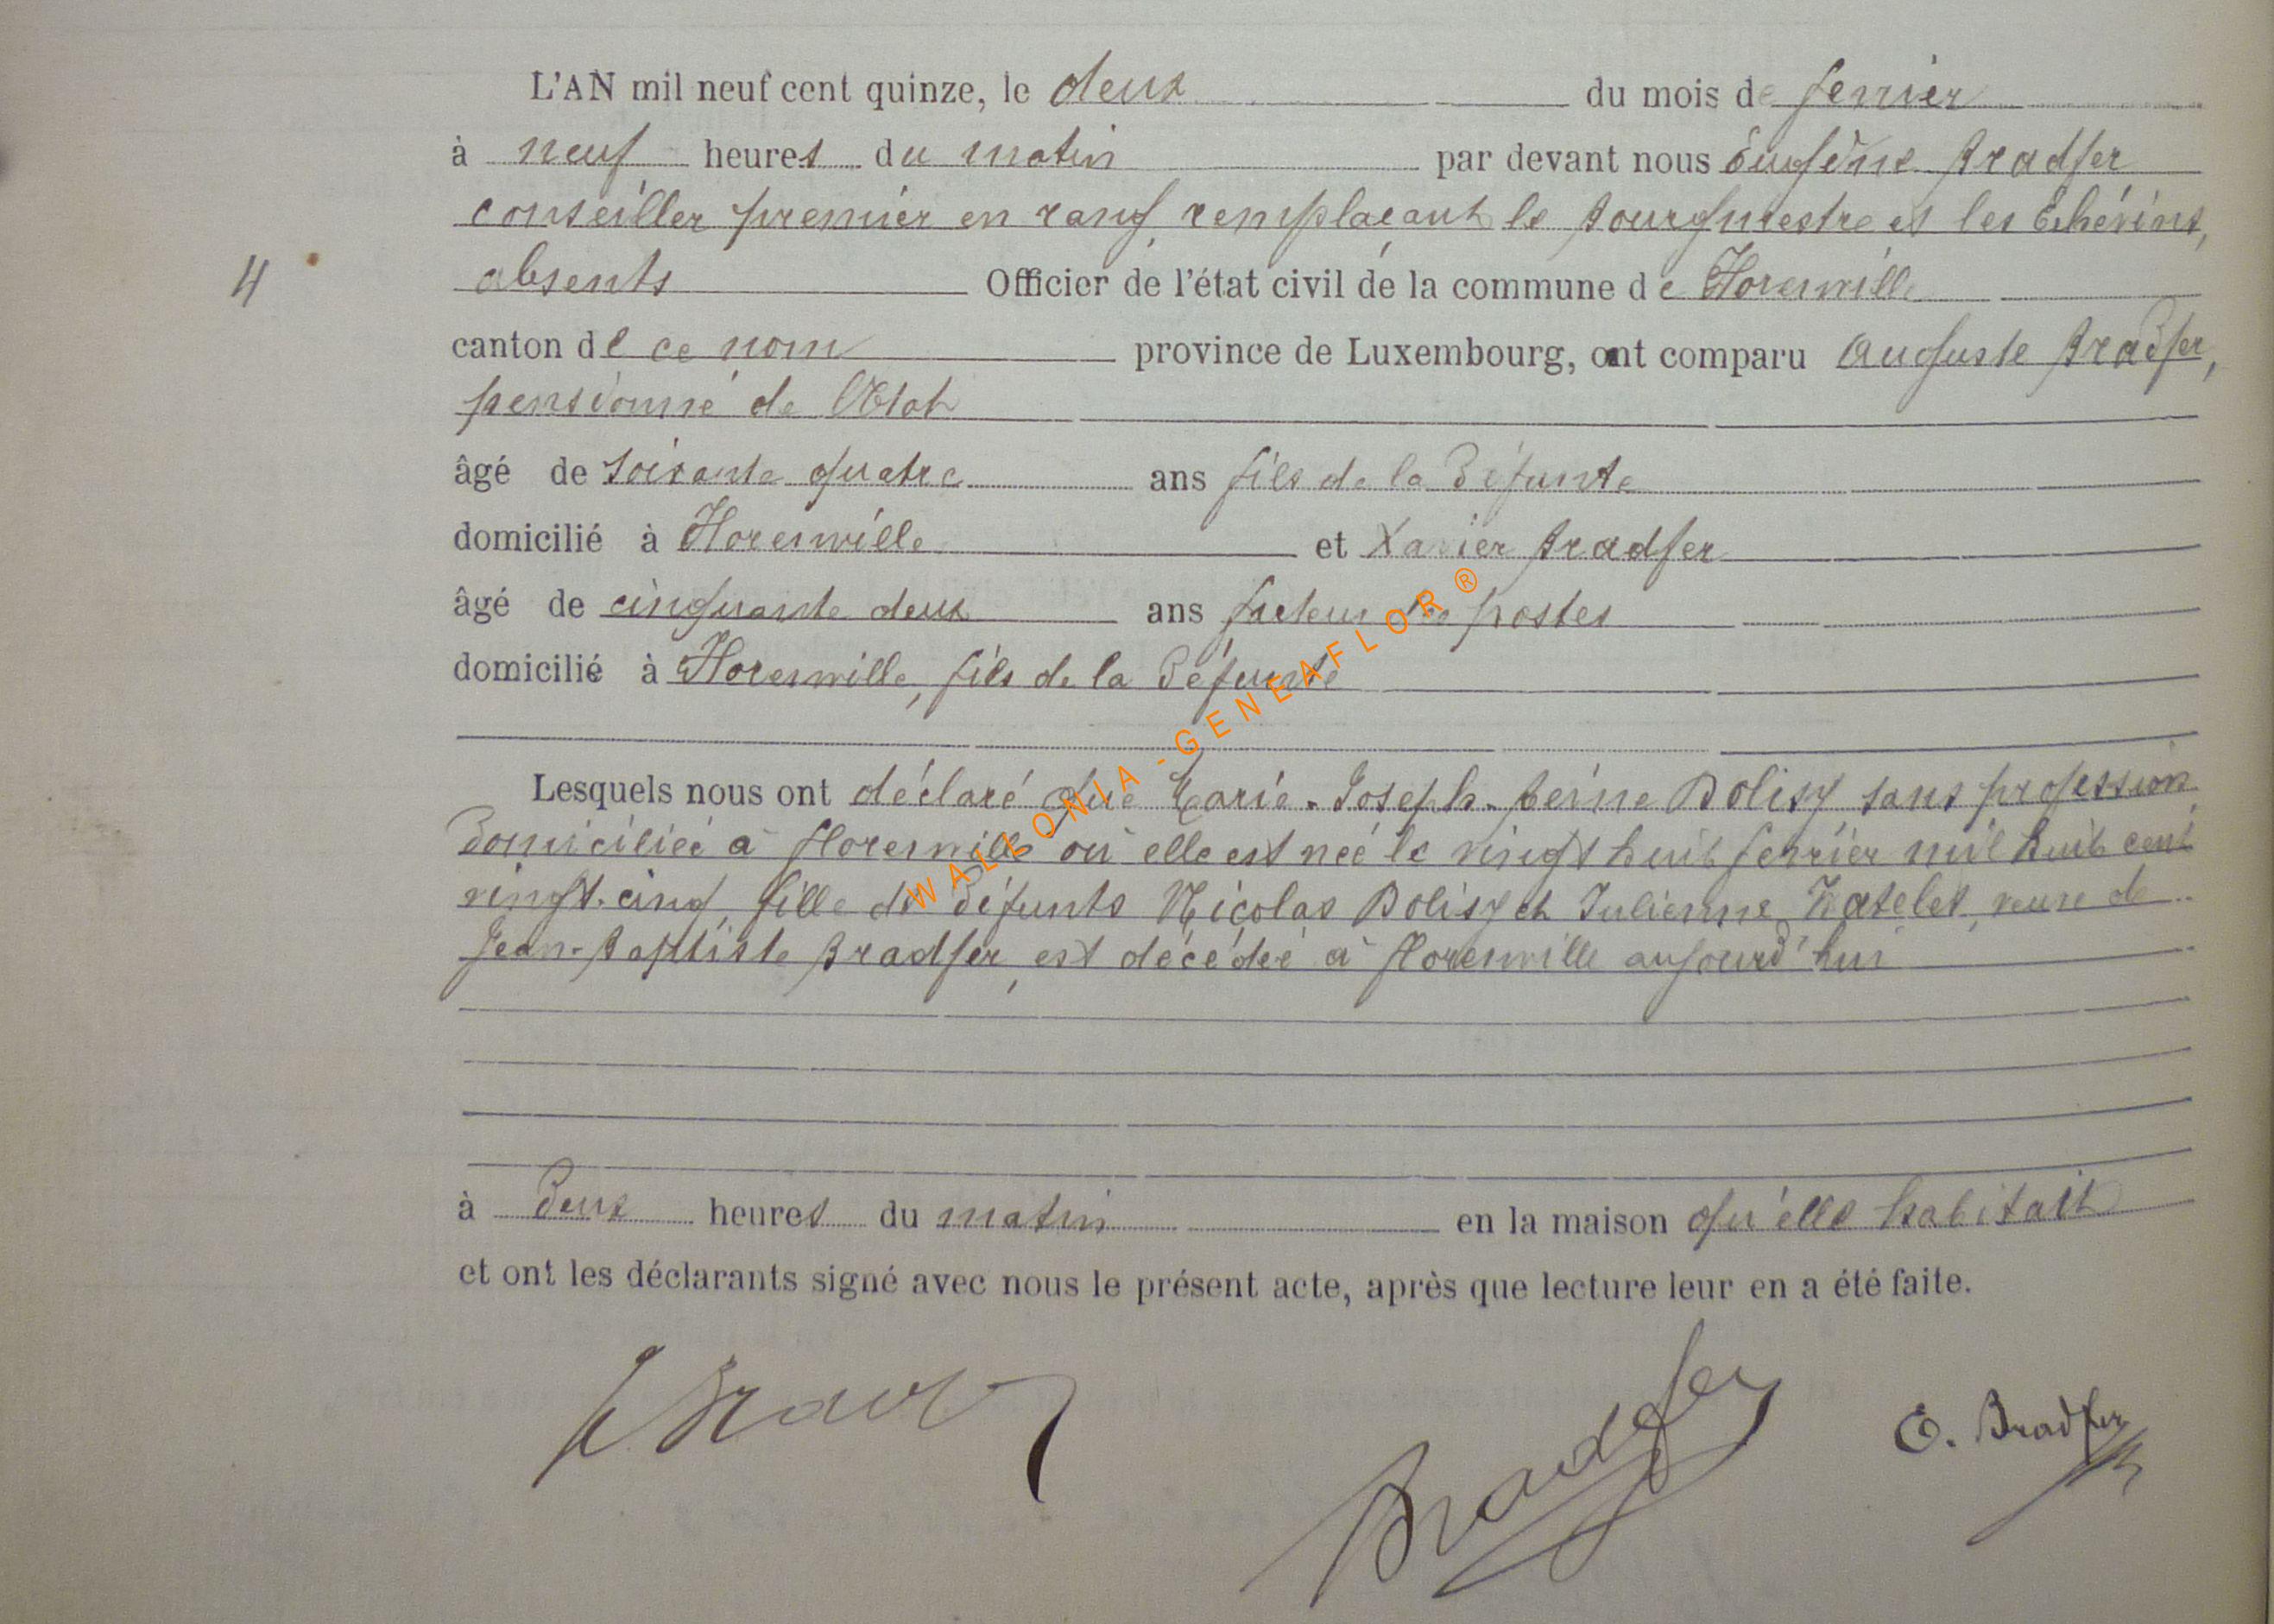 L'AN mil neuf cent quinze, le deux du mois de février
à neuf heures du matin par devant nous Eugène Bradfer
conseiller premier en rang, remplaçant le Bourgmestre et les Echévins,
4 absents Officier de l'état civil de la commune de Florenville
canton de ce nom province de Luxembourg, ont comparu Auguste Bradfer,
pensionné de l'Etat
âgé de soixante quatre ans fils de la défunte
domicilié à Florenville et Xavier Bradfer
âgé de cinquante deux ans facteur des postes
domicilié à Florenville, fils de la défunte
Lesquels nous ont déclaré que Marie-Joseph- Dolisy, sans profession,
domiciliée à Florenville où elle est née le vingt huit février mil huit cent
vingt-cinq, fille de défunts Nicolas Dolisy et Julienne Watelet, veuve de
Jean-Baptiste Bradfer, est décédée à Florenville aujourd'hui
à deux heures du matin en la maison qu'elle habitait
et ont les déclarants signé avec nous le présent acte, après que lecture leur en a été faite.
Bradfer E. Bradfer
WALLONIA-GENEAFLOR®